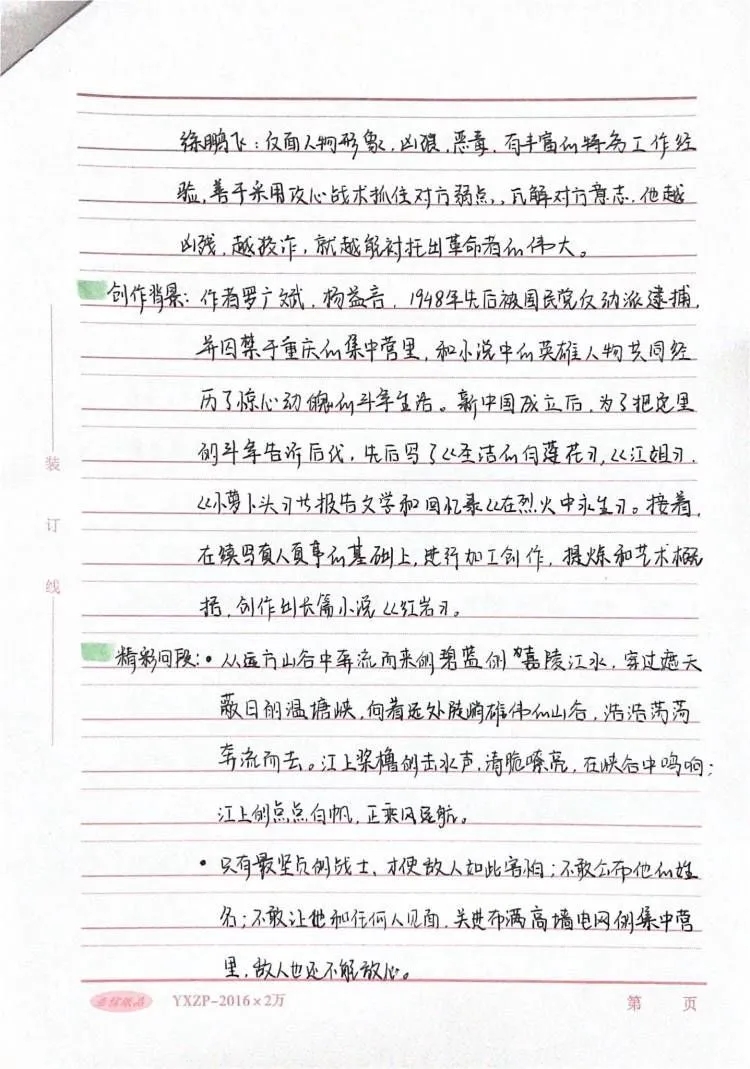 徐鹏飞：反面人物形象，凶狠，恶毒，有丰富的特务工作经
验，善于采用攻心战术抓住对方弱点，，瓦解对方意志，他越
凶残，越狡诈，就越能衬托出革命者的伟大。
创作背景：作者罗广斌，杨益言，1948年先后被国民党反动派逮捕，
并囚禁于重庆的集中营里，和小说中的英雄人物共同经
历了惊心动魄的斗争生活。新中国成立后，为了把这里
的斗争告诉后代，先后写了《圣洁的白莲花》，《江姐》，
《小萝卜头》等报告文学和回忆录《在烈火中永生》。接着，
在续写真人真事的基础上，进行加工创作，提炼和艺术概
括，创作出长篇小说《红岩》。
精彩回段：• 从远方山谷中奔流而来的碧蓝的嘉陵江水，穿过遮天
蔽日的温塘峡，向着远处陡峭雄伟的山谷，浩浩荡荡
奔流而去。江上桨橹的击水声，清脆嘹亮，在峡谷中鸣响；
江上的点点白帆，正乘风远航。
• 只有最坚贞的战士，才使敌人如此害怕；不敢公布他的姓
名；不敢让他和任何人见面，关进布满高墙电网的集中营
里，敌人也还不能放心。
装
订
线
YXZP-2016×2万
第 页